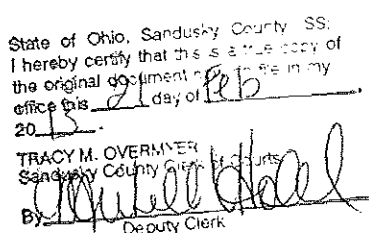 State of Ohio, Sandusky County SS:
I hereby certify that this is a true copy of
the original document on file in my
office this 21 day of Feb
20 13.
TRACY M. OVERMYER
Sandusky County Clerk of Courts
By
Deputy Clerk